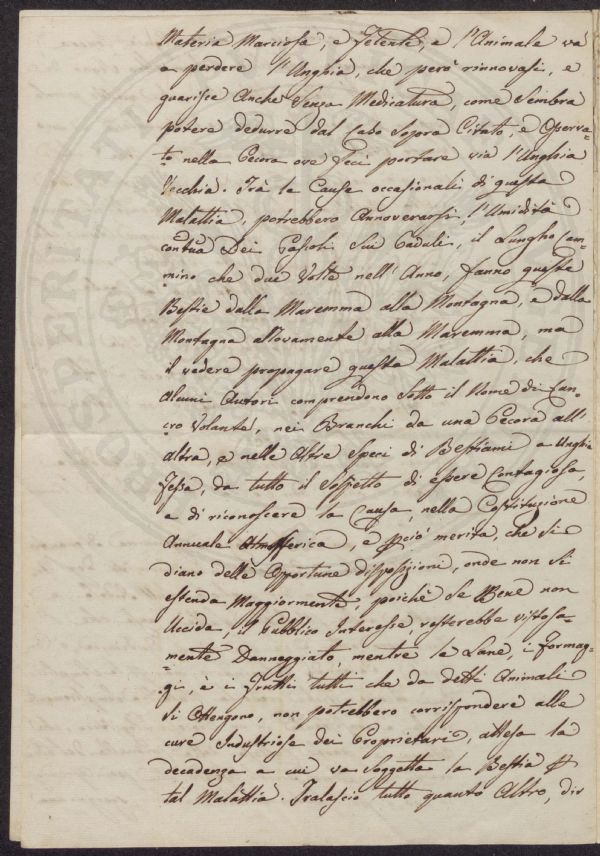 Materia Marciosa, e Fetente, e l'Animale va
a perdere l'Unghia, che però rinnovasi, e
guarisce Anche Senza Medicatura, come Sembra
potere dedurre dal Caso Sopra Citato, e Osserva=
to nella Pecora ove Feci portare via l'Unghia
Vecchia. Frà le Cause occasionali di questa
Malattia, potrebbero Annoverarsi, l'Umidità
continua Dei Pascoli Sui Paduli, il Lungho Cam=
mino che due Volte nell'Anno, fanno queste
Bestie dalla Maremma alla Montagna, e dalla
Montagna nuovamente alla Maremma, ma
il vedere propagare questa Malattia, che
Alcuni Autori comprendono Sotto il Nome di Can=
cro Volante, nei Branchi da una Pecora all'
altra, e nelle Altre Speci di Bestiami a Unghia
Fessa, da tutto il Sospetto di essere Contagiosa,
e di riconoscere la Causa, nella Costituzione
Annuale Atmosferica, e pciò merita, che si
diano delle Opportune disposizioni, onde non Si
estenda Maggiormente, poichè Se Bene non
Uccida, il Pubblico Interesse, resterebbe vistosa=
mente Danneggiato, mentre le Lane, i formag=
gi, e i Frutti tutti che da detti Animali
Si Ottengono, non potrebbero corrispondere alle
cure Industriose dei Proprietari, attesa la
decadenza a cui va Soggetta la Bestia p
tal Malattia. Tralascio tutto quanto Altro, dir